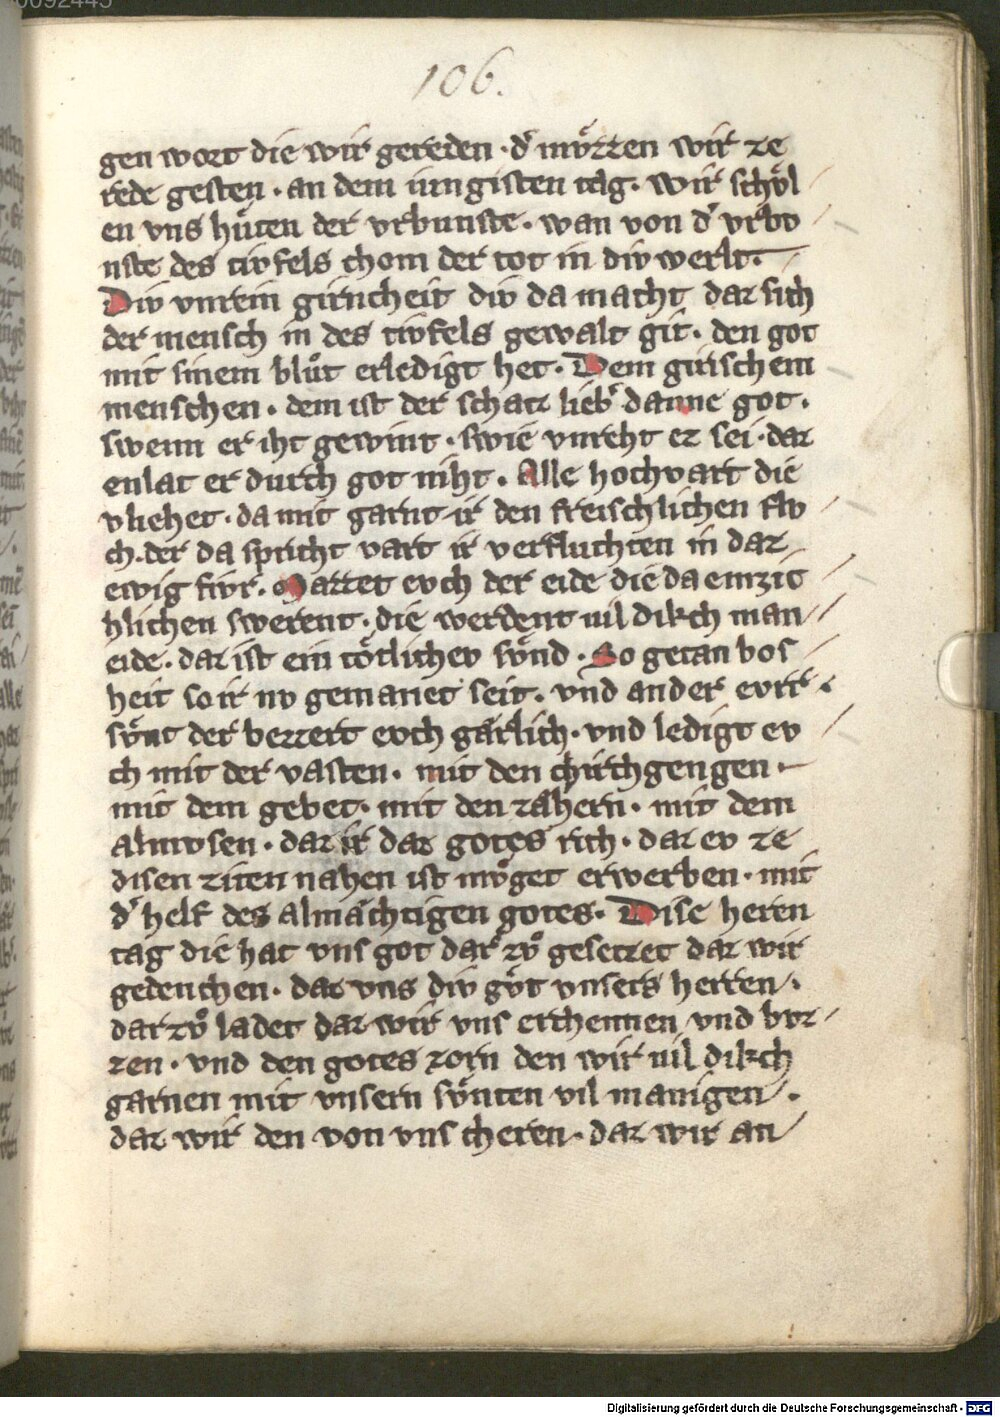 0092445
106.
gen wort die wir gereden · d᷑ mͤvzzen wir ze
rede gesten · an dem iungisten tag · wir schvͤl
en vns hvͤten der vrbunste · wan von d᷑ vrbv
nste des tivfels chom der tot in div werlt ·
Div vnrein giricheit div da macht daz sich
der mensch in des tivfels gewalt git · den got
mit sinem blůt erledigt het · Dem girischem
menschen · dem ist der schatz lieb᷑ danne got ·
swenn er iht gewint · swie vnreht ez sei · daz
enlat er durch got niht · Alle hochvart die
vliehet · da mit garnt ir den freischlichen flv
ch · der da spricht vart ir verfluchten in daz
ewig fivr · Mazzet evch der eide die da emzit
hlichen swerent · die werdent vil dikch man
eide · daz ist ein toͤtlichev svͤnd · So getan bos
heit so ir nv gemanet seit · vnd ander evrr
svͤnt der bezzert evch gaͤrlich · vnd ledigt ev
ch mit der vasten · mit den chirchgengen
mit dem gebet · mit den zaͤhern · mit dem
almvsen · daz ir daz gotes rich · daz ev ze
disen ziten nahen ist mvͤget erwerben · mit
d᷑ helf des almaͤchtigen gotes · Dise heren
tag die hat vns got dar zvͦ gesetzet daz wir
gedenchen · daz vns div gvͤt vnsers herren ·
dar zvͦ ladet daz wir vns erchennen vnd bvz
zen · vnd den gotes zorn den wir vil dikch
garnen mit vnsern svͤnten vil manigen ·
daz wir den von vns cheren · daz wir an
Digitalisierung gefördert durch die Deutsche Forschungsgemeinschaft - DFG